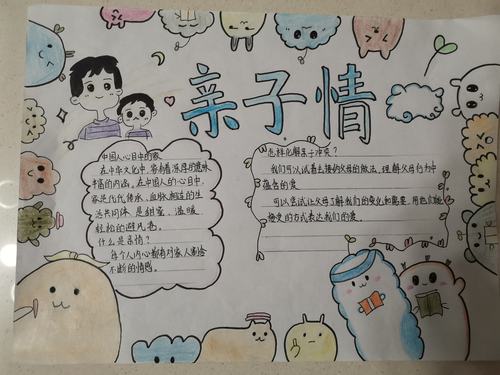 亲子情
中国人心目中的家
在中华文化中，家有着深厚的意味
丰富的内涵。在中国人的心目中，
家是代代传承、血脉相连的生
活共同体 是甜蜜、温暖
轻松的避风港。
什么是亲情？
每个人内心都有对家人割舍
不断的情感。
怎样化解亲子冲突？
我们可以试着去接纳父母的做法，理解父母行为中
蕴含的爱
可以尝试让父母了解我们的变化和需要，用他们能
接受的方式表达我们的爱。